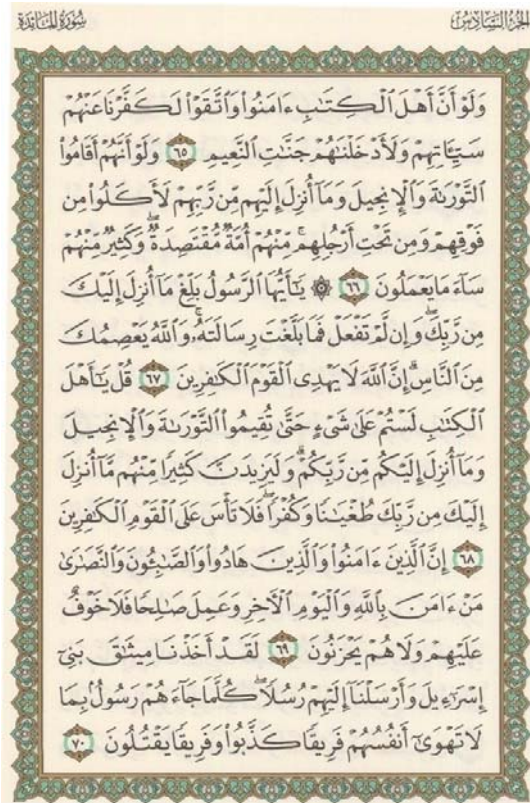 الجزء السادس
سورة المائدة
وَلَوْ أَنَّ أَهْلَ ٱلْكِتَٰبِ ءَامَنُوا۟ وَٱتَّقَوْا۟ لَكَفَّرْنَا عَنْهُمْ
سَيِّـَٔاتِهِمْ وَلَأَدْخَلْنَٰهُمْ جَنَّٰتِ ٱلنَّعِيمِ ٦٥ وَلَوْ أَنَّهُمْ أَقَامُوا۟
ٱلتَّوْرَىٰةَ وَٱلْإِنجِيلَ وَمَآ أُنزِلَ إِلَيْهِم مِّن رَّبِّهِمْ لَأَكَلُوا۟ مِن
فَوْقِهِمْ وَمِن تَحْتِ أَرْجُلِهِم ۚ مِّنْهُمْ أُمَّةٌ مُّقْتَصِدَةٌ ۖ وَكَثِيرٌ مِّنْهُمْ
سَآءَ مَا يَعْمَلُونَ ٦٦ ۞ يَٰٓأَيُّهَا ٱلرَّسُولُ بَلِّغْ مَآ أُنزِلَ إِلَيْكَ
مِن رَّبِّكَ ۖ وَإِن لَّمْ تَفْعَلْ فَمَا بَلَّغْتَ رِسَالَتَهُۥ ۚ وَٱللَّهُ يَعْصِمُكَ
مِنَ ٱلنَّاسِ ۗ إِنَّ ٱللَّهَ لَا يَهْدِى ٱلْقَوْمَ ٱلْكَٰفِرِينَ ٦٧ قُلْ يَٰٓأَهْلَ
ٱلْكِتَٰبِ لَسْتُمْ عَلَىٰ شَىْءٍ حَتَّىٰ تُقِيمُوا۟ ٱلتَّوْرَىٰةَ وَٱلْإِنجِيلَ
وَمَآ أُنزِلَ إِلَيْكُم مِّن رَّبِّكُمْ ۗ وَلَيَزِيدَنَّ كَثِيرًا مِّنْهُم مَّآ أُنزِلَ
إِلَيْكَ مِن رَّبِّكَ طُغْيَٰنًا وَكُفْرًا ۖ فَلَا تَأْسَ عَلَى ٱلْقَوْمِ ٱلْكَٰفِرِينَ
٦٨ إِنَّ ٱلَّذِينَ ءَامَنُوا۟ وَٱلَّذِينَ هَادُوا۟ وَٱلصَّٰبِـُٔونَ وَٱلنَّصَٰرَىٰ
مَنْ ءَامَنَ بِٱللَّهِ وَٱلْيَوْمِ ٱلْءَاخِرِ وَعَمِلَ صَٰلِحًا فَلَا خَوْفٌ
عَلَيْهِمْ وَلَا هُمْ يَحْزَنُونَ ٦٩ لَقَدْ أَخَذْنَا مِيثَٰقَ بَنِىٓ
إِسْرَٰٓءِيلَ وَأَرْسَلْنَآ إِلَيْهِمْ رُسُلًا ۖ كُلَّمَا جَآءَهُمْ رَسُولٌۢ بِمَا
لَا تَهْوَىٰٓ أَنفُسُهُمْ فَرِيقًا كَذَّبُوا۟ وَفَرِيقًا يَقْتُلُونَ ٧٠